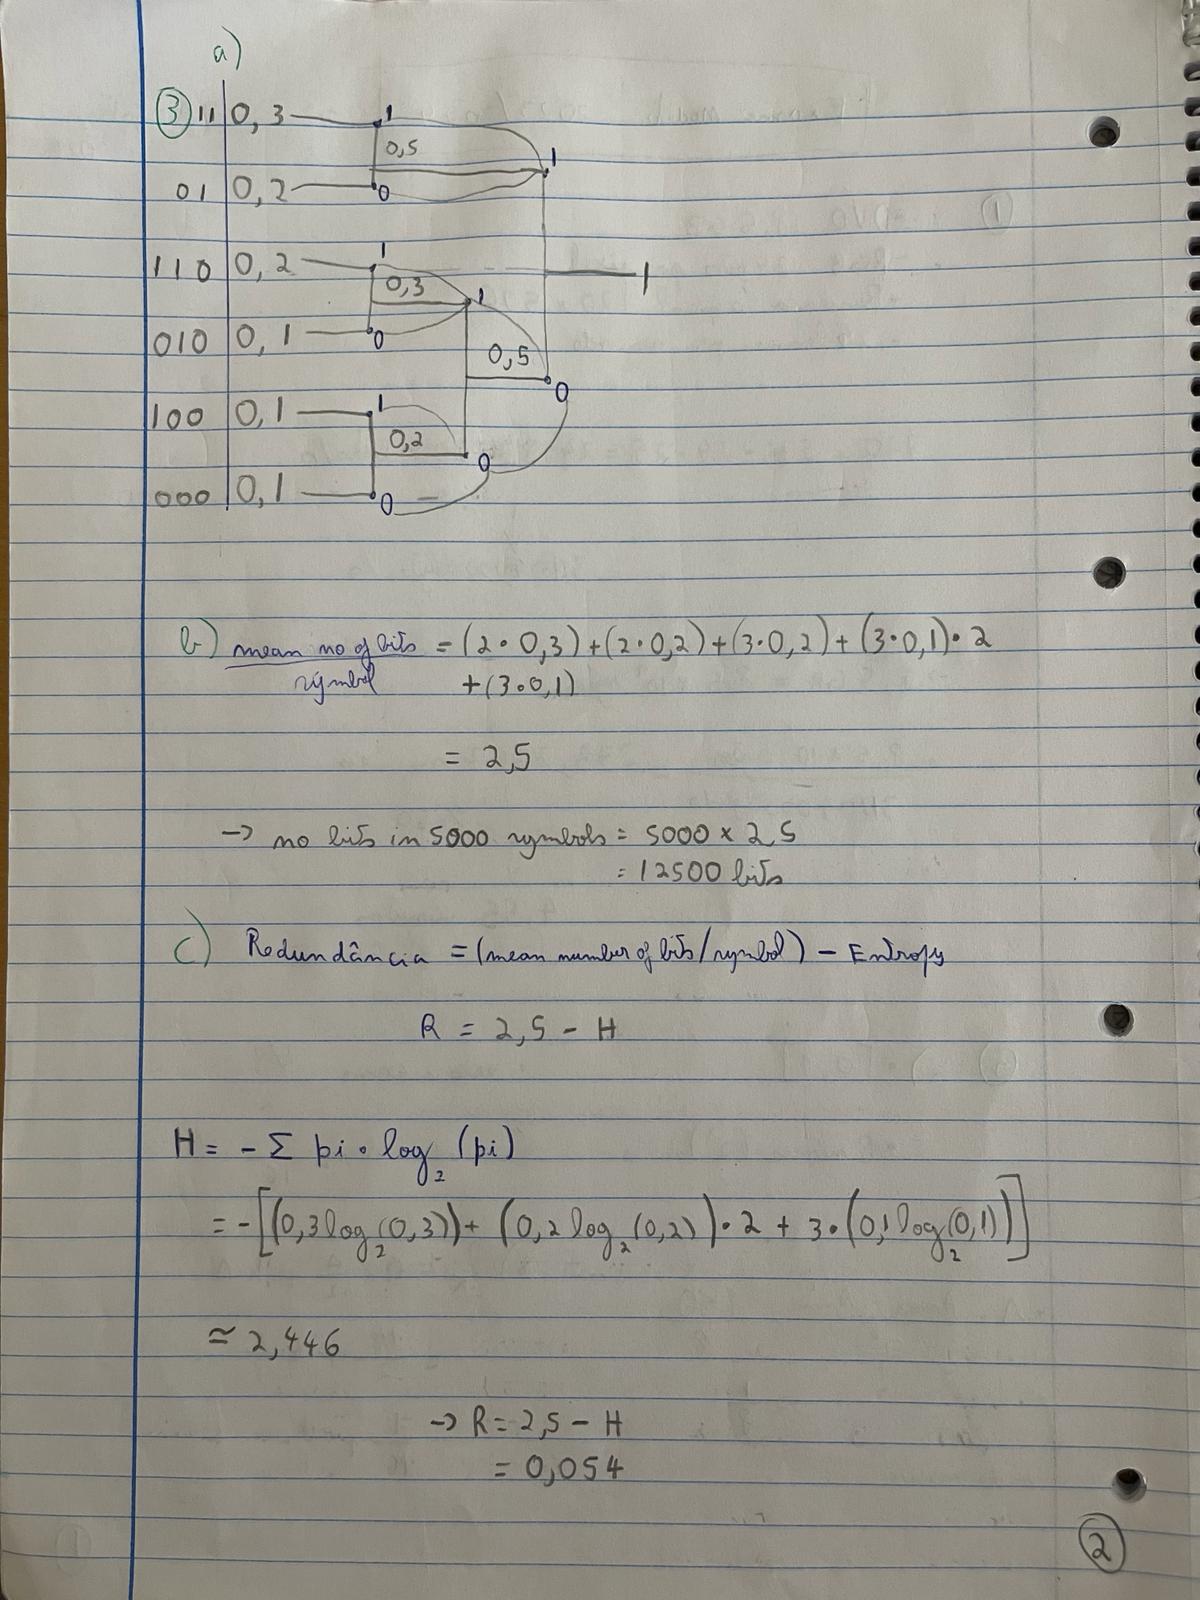 a)
③ 11 0,3 1
0,5 1
01 0,2 0
110 0,2 1
0,3 1 1
010 0,1 0
0,5 0
100 0,1 1
0,2 0
000 0,1 0
b) mean no of bits = (2•0,3)+(2•0,2)+(3•0,2)+(3•0,1)•2
symbol +(3•0,1)
= 2,5
→ no bits in 5000 symbols = 5000 × 2,5
= 12500 bits
c) Redundância = (mean number of bits/symbol) – Entropy
R = 2,5 – H
H = - Σ pi • log₂ (pi)
= -[(0,3log₂(0,3))+ (0,2 log₂(0,2))•2 + 3•(0,1log₂(0,1))]
≃ 2,446
→ R = 2,5 – H
= 0,054
②